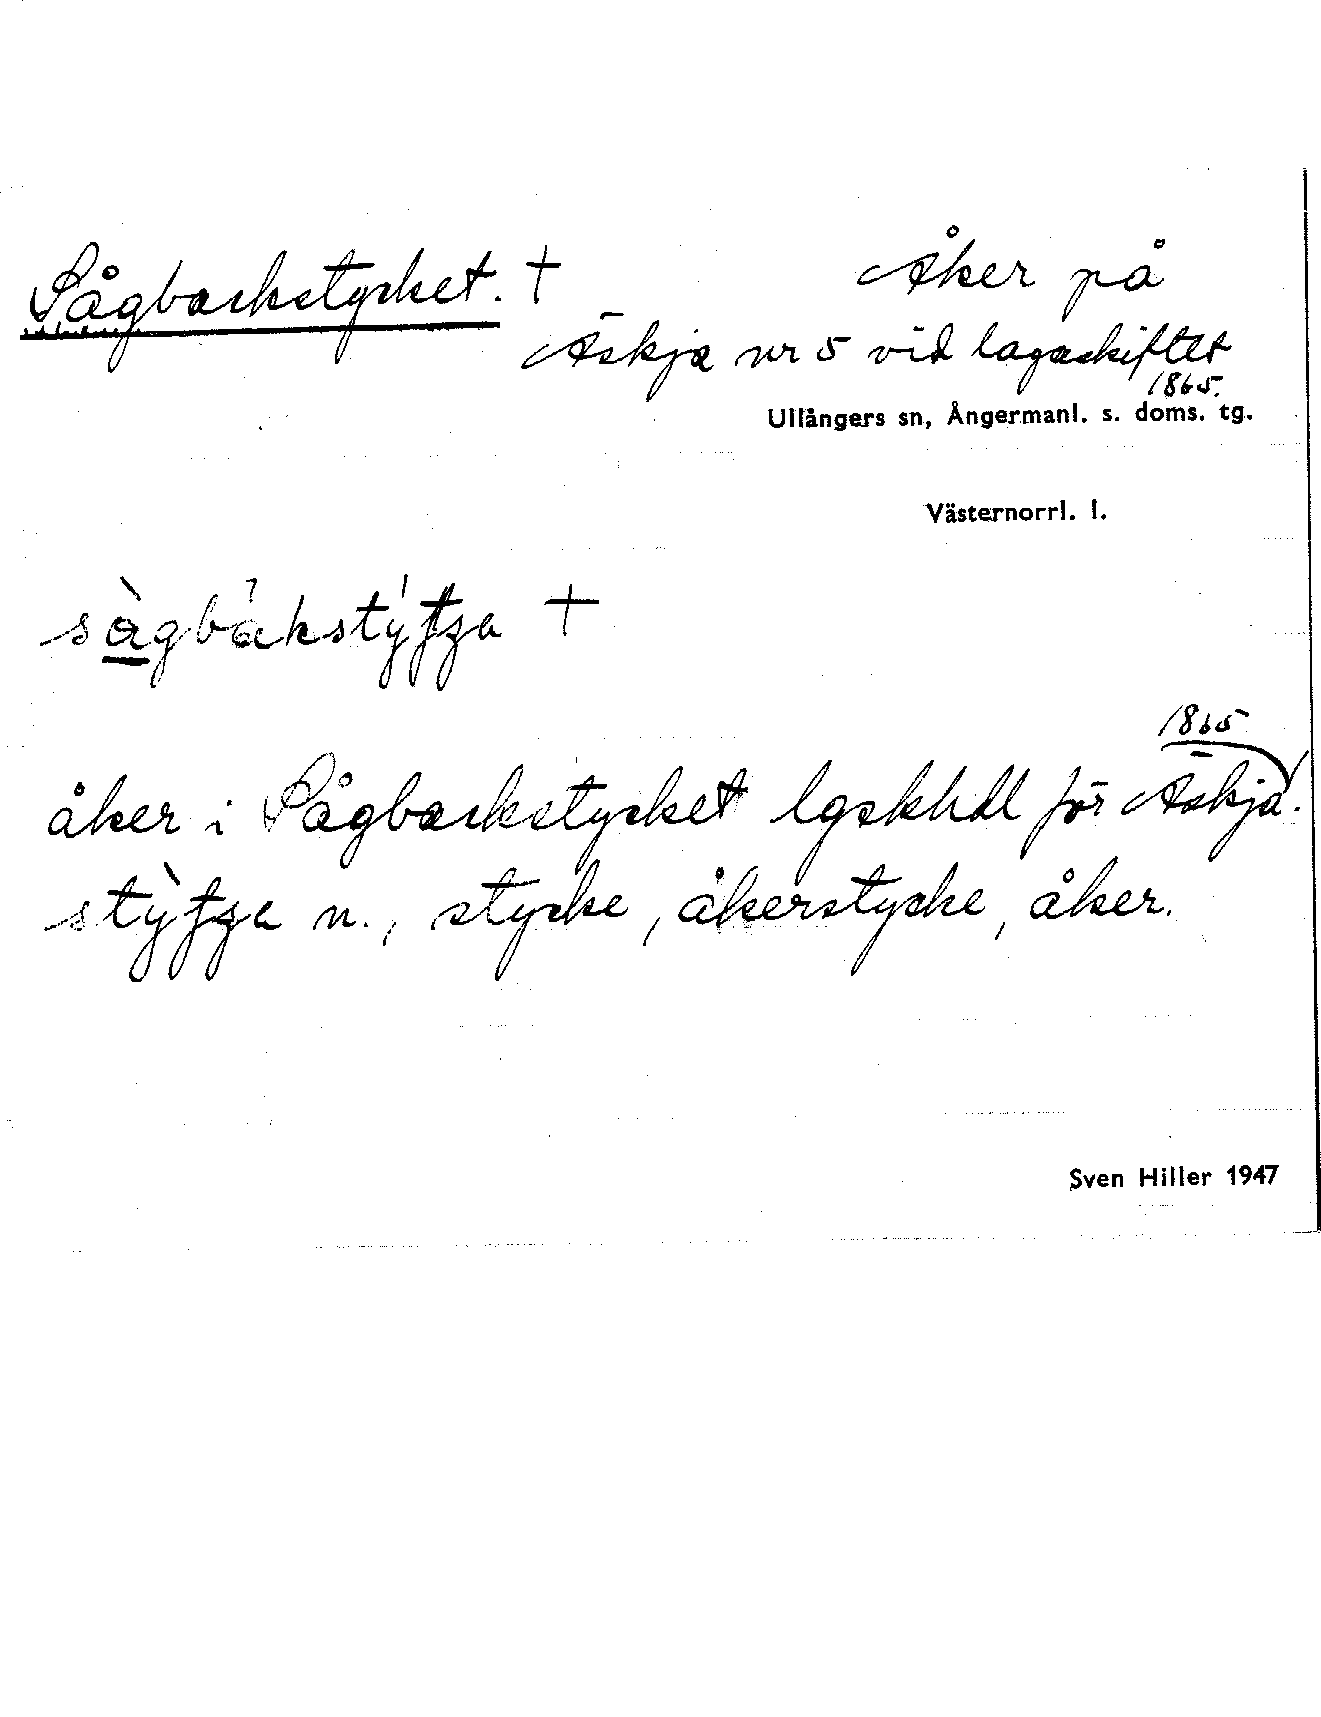 Sågbackstycket. †
Åker på
Äskja nr 5 vid lagaskiftet
1865.
Ullångers sn, Ångermanl. s. doms. tg.
Västernorrl. l.
†
1865
åker i Sågbackstycket lgskhdl för Äskja.
n., stycke, åkerstycke, åker.
Sven Hiller 1947